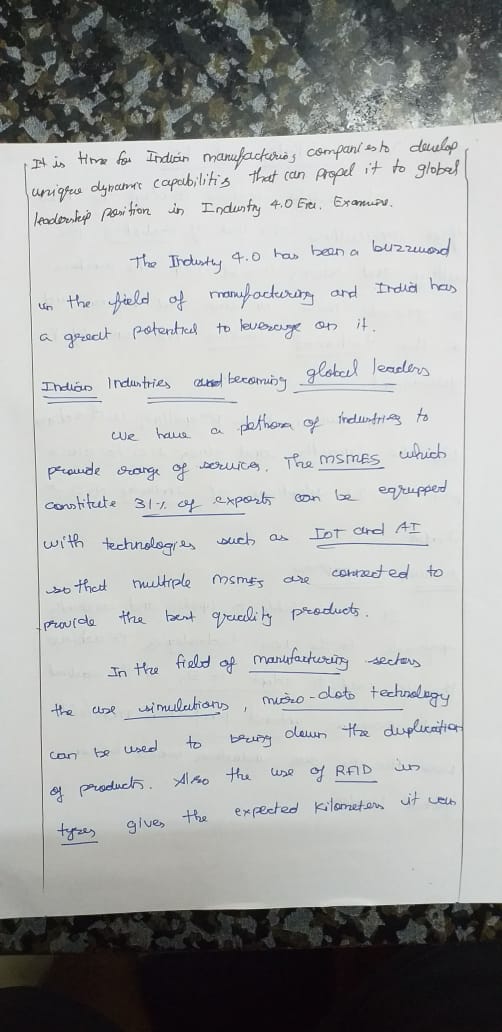 It is time for Indian manufacturing companies to develop
unique dynamic capabilitis that can propel it to global
leadership position in Industry 4.0 Era. Examine.
The Industry 4.0 has been a buzzword
in the field of manufacturing and India has
a great potential to leverage on it.
Indian Industries and becoming global leaders
We have a plethora of industries to
provide range of services. The MSMES which
constitute 31% of exports can be equipped
with technologies such as IoT and AI
so that multiple MSMEs are connected to
provide the best quality products.
In the field of manufacturing sectors
the use simulations, micro-dots technology
can be used to bring down the duplication
of products. Also the use of RFID in
tyres gives the expected kilometers it can